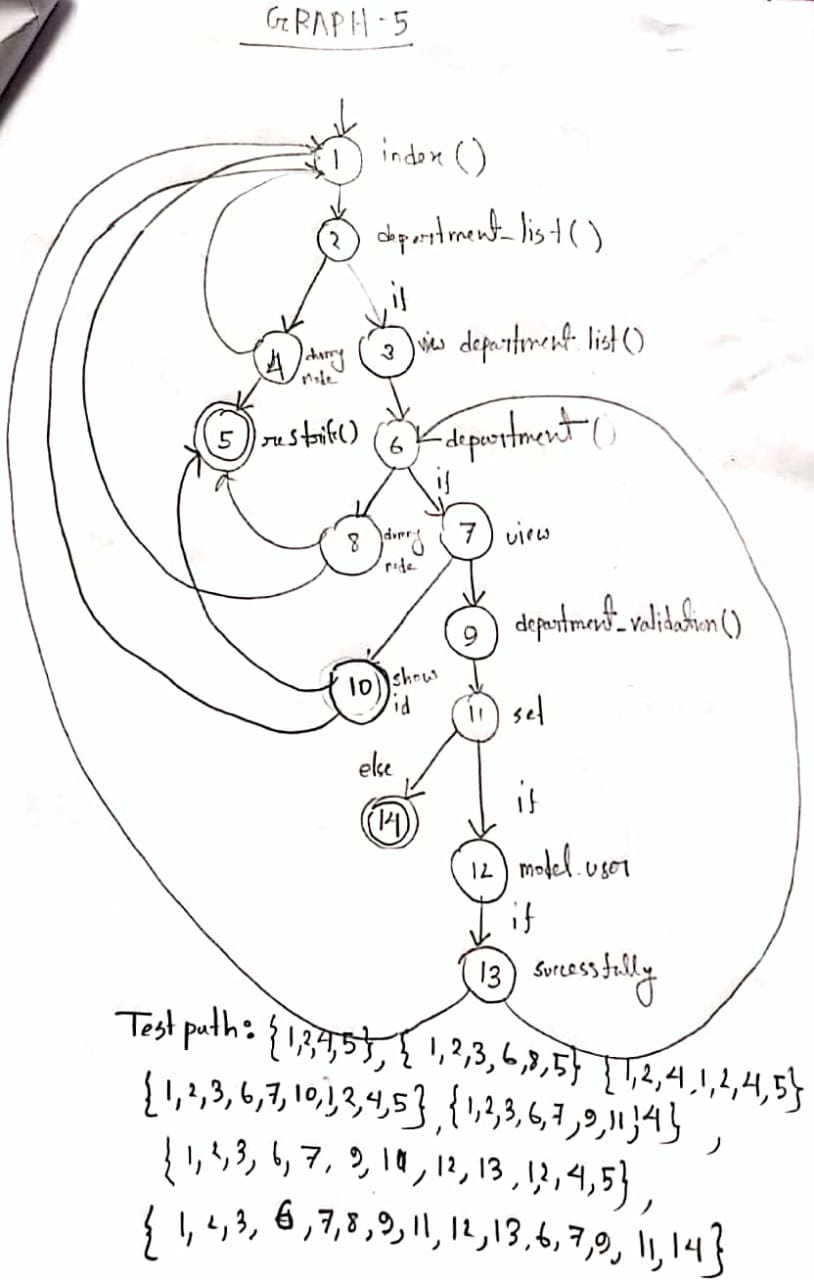 GRAPH-5
1 index()
2 department_list()
if
4 dummy node 3 view department list()
5 restrict() 6 department()
if
8 dummy node 7 view
9 department_validation()
10 show id
11 set
else
14 if
12 model.user
if
13 successfully
Test path: {1,2,4,5}, { 1,2,3,6,8,5} {1,2,4,1,2,4,5}
{1,2,3,6,7,10,1,2,4,5}, {1,2,3,6,7,9,11,14},
{1,2,3,6,7,9,11,12,13,1,2,4,5},
{1,2,3,6,7,8,9,11,12,13,6,7,9,11,14}